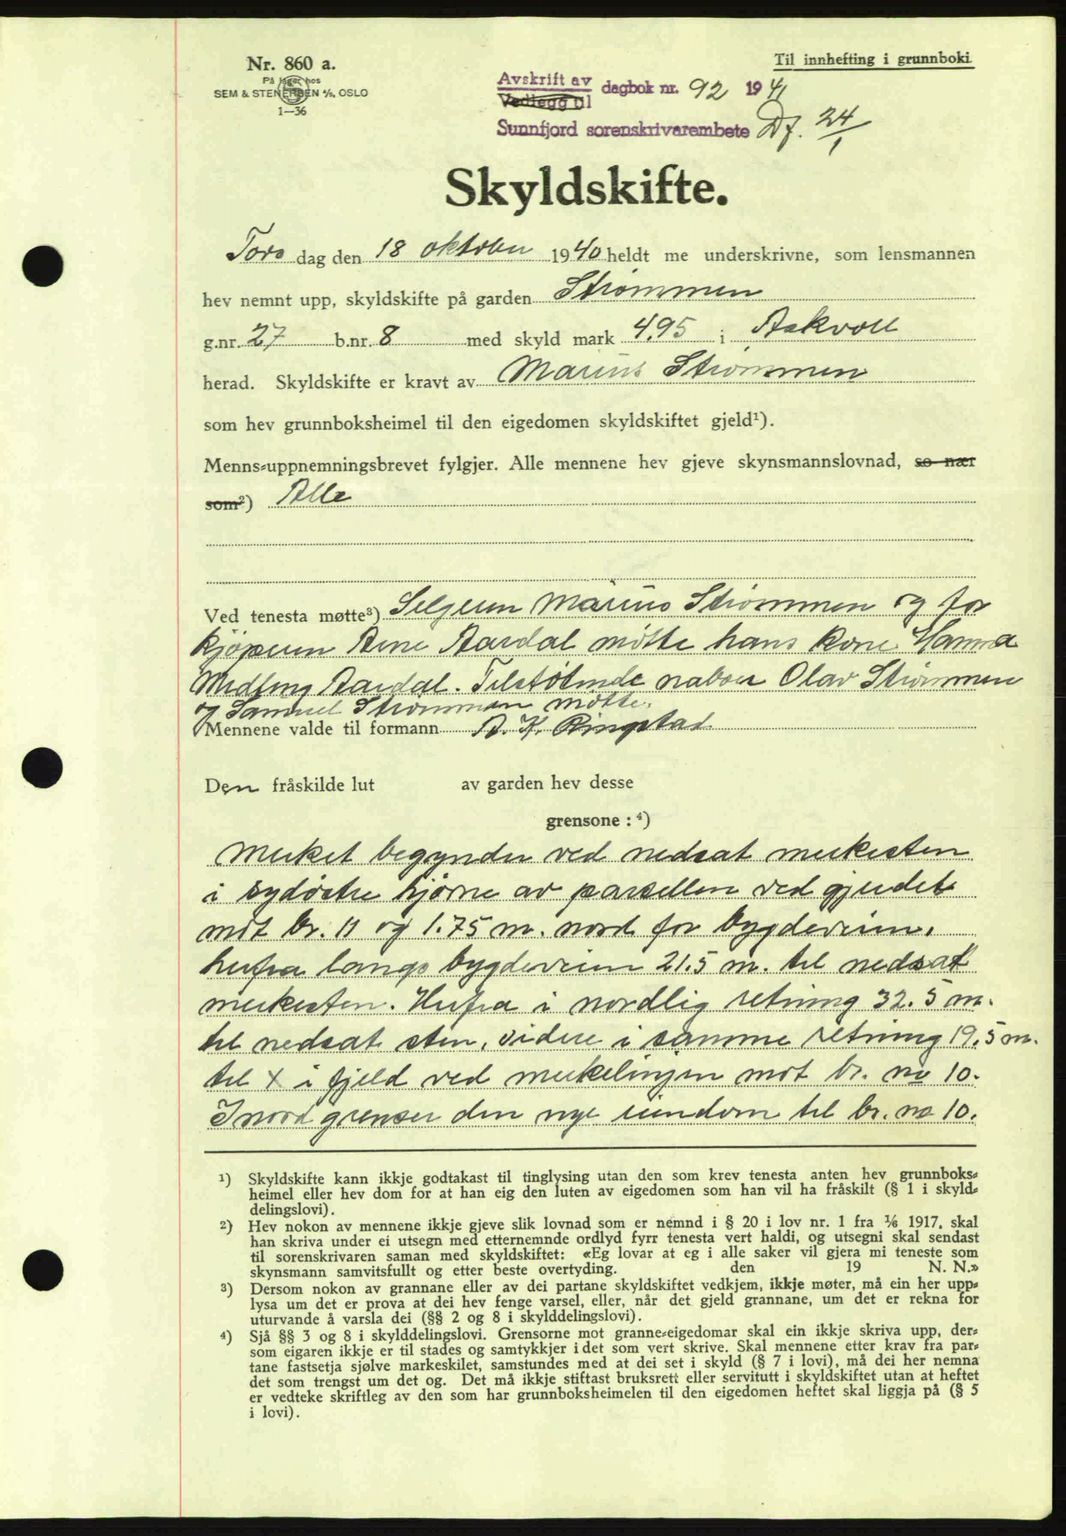 Nr. 860 a.
På lager hos
SEM & STENERSEN A/S, OSLO
1—36
Til innhefting i grunnboki
Avskrift av
Vedlegg til
dagbok nr. 92 1941
Sunnfjord sorenskrivarembete Df. 24/1
Skyldskifte.
Tors dag den 18 oktober 1940 heldt me underskrivne, som lensmannen
hev nemnt upp, skyldskifte på garden Strømmen
g.nr. 27 b.nr. 8 med skyld mark 4,95 i Askvoll
herad. Skyldskifte er kravt av Marius Strømmen
som hev grunnboksheimel til den eigedomen skyldskiftet gjeld¹).
Menns-uppnemningsbrevet fylgjer. Alle mennene hev gjeve skynsmannslovnad, so nær
som²) Alle
Ved tenesta møtte³) Selgeren Marius Strømmen og for
kjøperen Arne Aardal møtte hans kone Hanna
Aardal. Tilstøtende naboer Olav Strømmen
og Samuel Strømmen møtte.
Mennene valde til formann A. K. Ringstad
Den fråskilde lut av garden hev desse
grensone : ⁴)
Merket begynder ved nedsat merkesten
i sydøstre hjørne av parsellen ved gjerdet
mot br. 11 og 1.75 m. nord for bygdeveien,
herfra langs bygdeveien 21.5 m. til nedsat
merkesten. Herfra i nordlig retning 32.5 m.
til nedsat sten, videre i samme retning 19,5 m.
til X i fjeld ved merkelinjen mot br. no 10.
I nord grenser den nye eiendom til br. no 10.
¹) Skyldskifte kann ikkje godtakast til tinglysing utan den som krev tenesta anten hev grunnboks-
heimel eller hev dom for at han eig den luten av eigedomen som han vil ha fråskilt (§ 1 i skyld-
delingslovi).
²) Hev nokon av mennene ikkje gjeve slik lovnad som er nemnd i § 20 i lov nr. 1 fra 1/6 1917, skal
han skriva under ei utsegn med etternemnde ordlyd fyrr tenesta vert haldi, og utsegni skal sendast
til sorenskrivaren saman med skyldskiftet: «Eg lovar at eg i alle saker vil gjera mi teneste som
skynsmann samvitsfullt og etter beste overtyding. den 19 N. N.»
³) Dersom nokon av grannane eller av dei partane skyldskiftet vedkjem, ikkje møter, må ein her upp-
lysa um det er prova at dei hev fenge varsel, eller, når det gjeld grannane, um det er rekna for
uturvande å varsla dei (§§ 2 og 8 i skylddelingslovi).
⁴) Sjå §§ 3 og 8 i skylddelingslovi. Grensorne mot granne-eigedomar skal ein ikkje skriva upp, der-
som eigaren ikkje er til stades og samtykkjer i det som vert skrive. Skal mennene etter krav fra par-
tane fastsetja sjølve markeskilet, samstundes med at dei set i skyld (§ 7 i lovi), må dei her nemna
det som trengst um det og. Det må ikkje stiftast bruksrett eller servitutt i skyldskiftet utan at heftet
er vedteke skriftleg av den som har grunnboksheimelen til den eigedomen heftet skal liggja på (§ 5
i lovi).